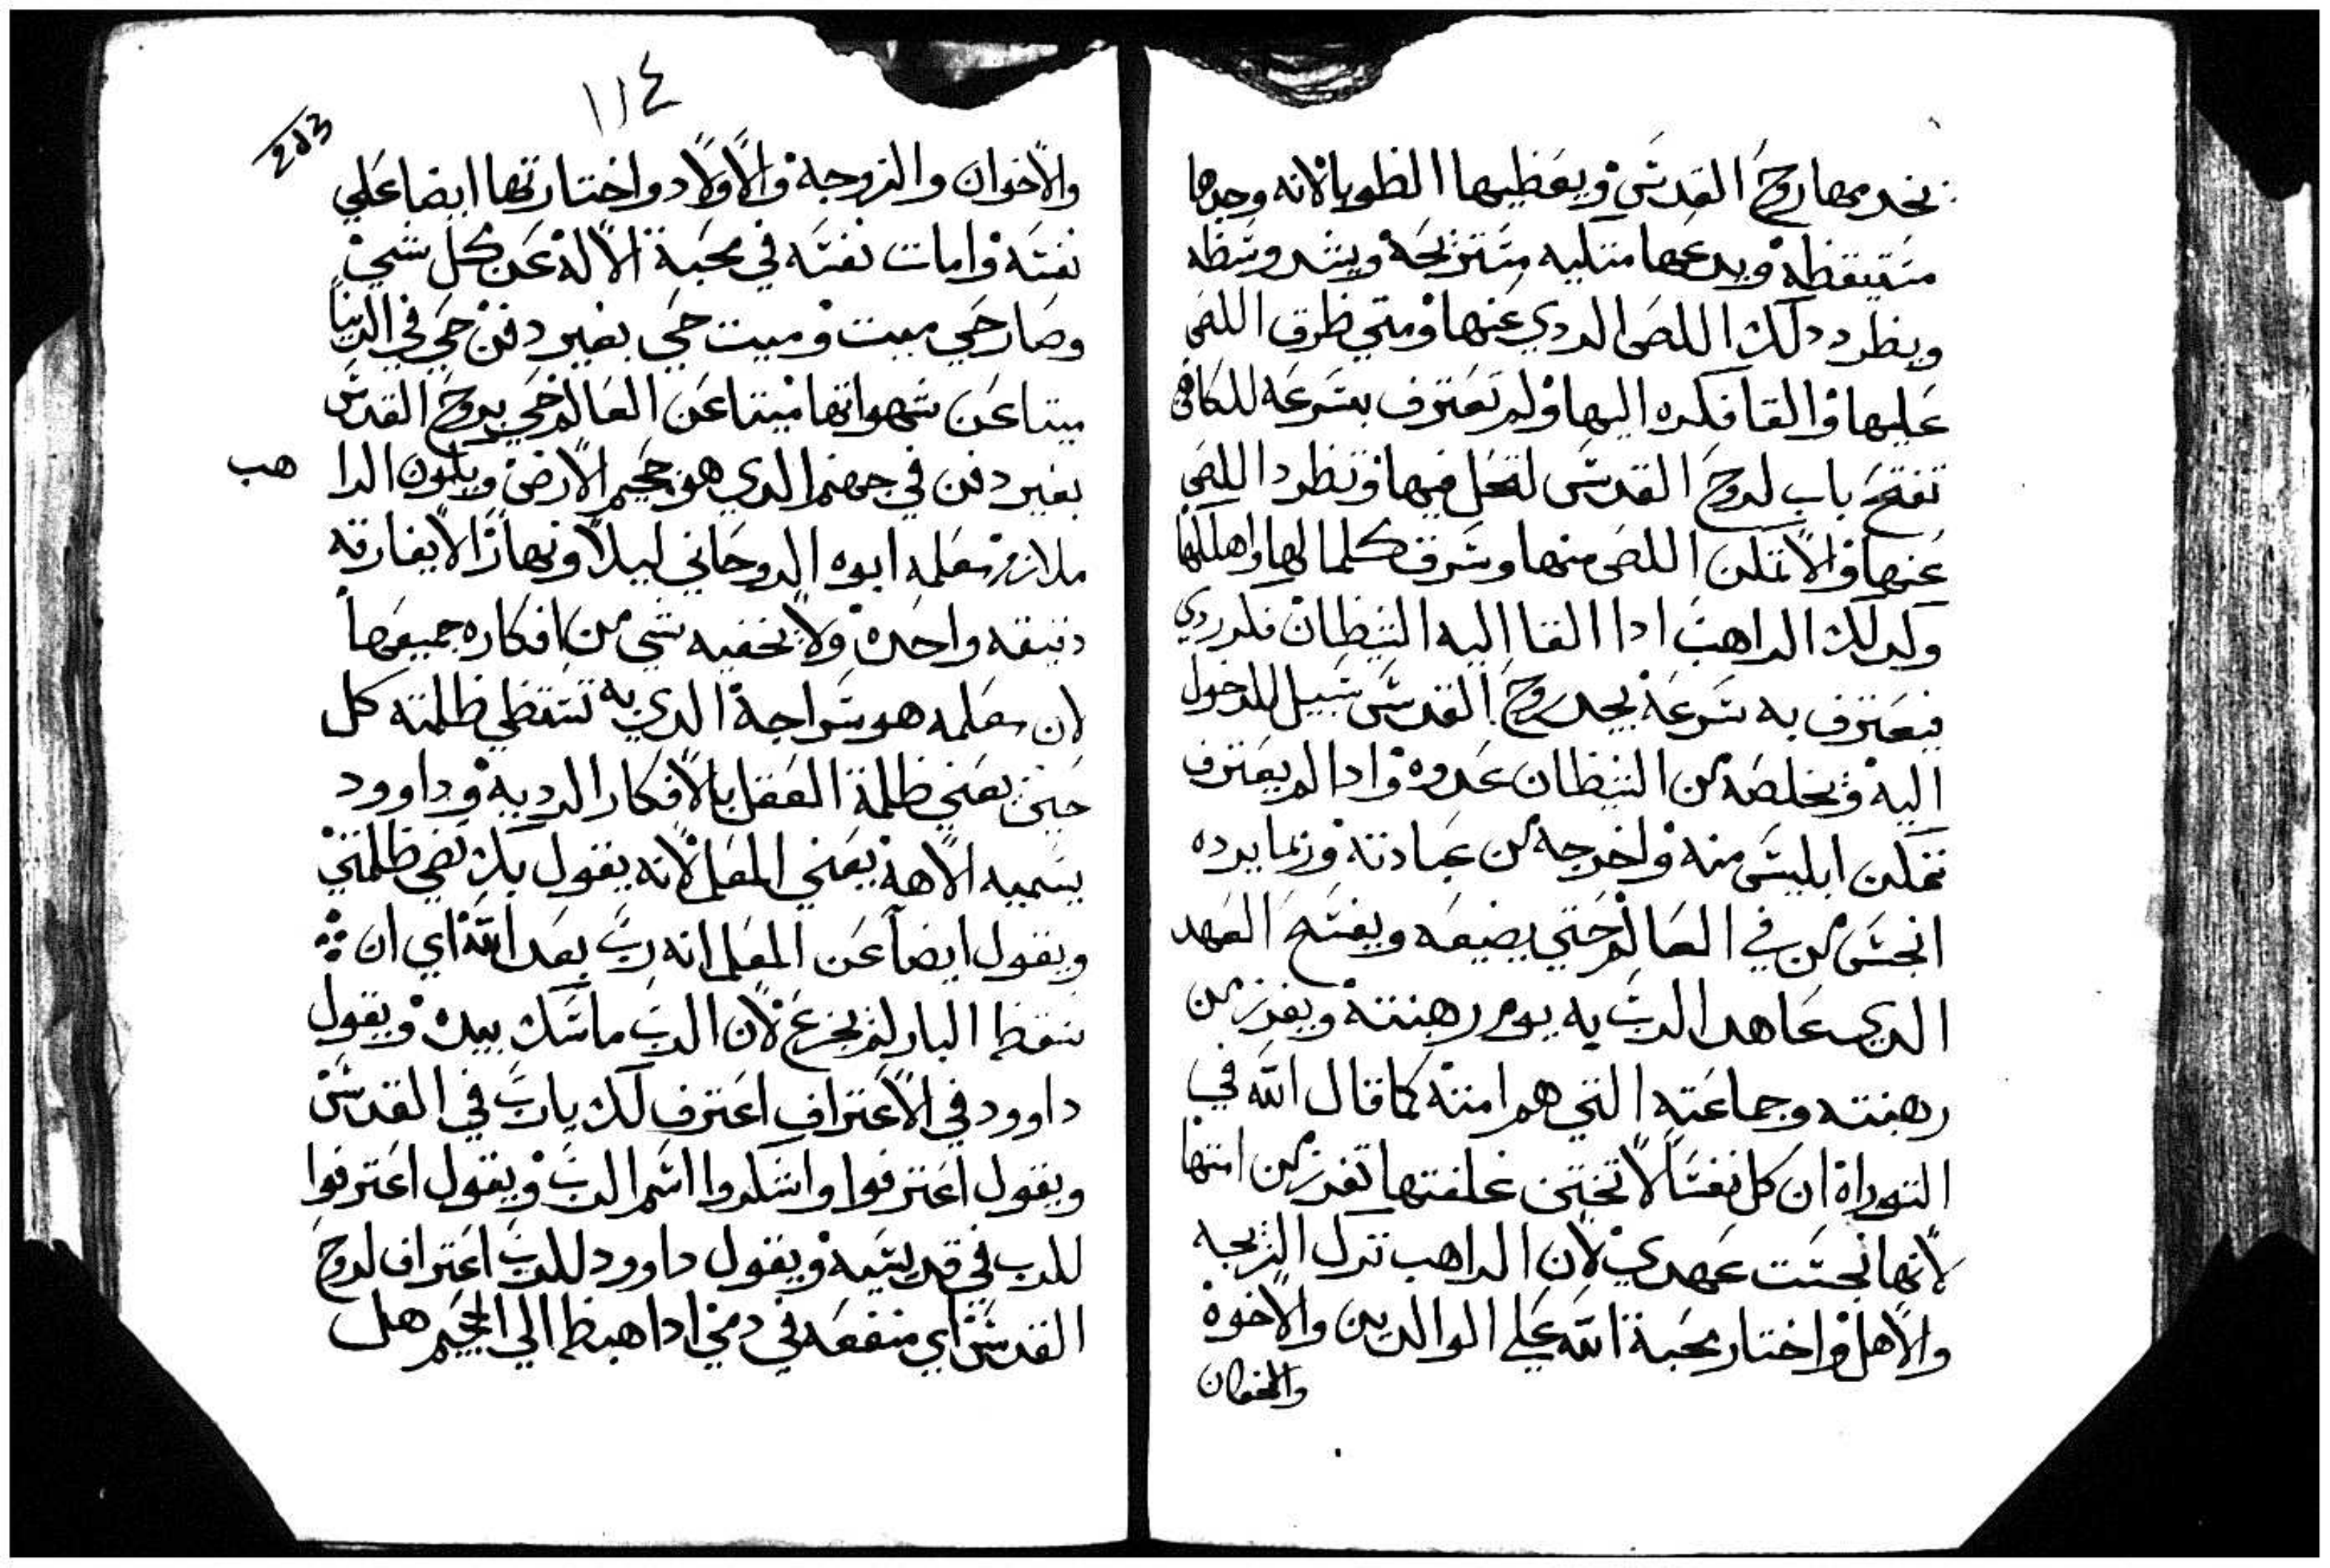 يخدمها روح القدس ويعطيها الطوبا لانه وجدها
متيقظه ويدعها متكيه متزيحة ويشد وسطه
ويطرد دلك اللص الردي عنها ومتي طرق اللص
عليها والقا فكره اليها ولم تعترف بسرعه للكاهن
تفتح باب لروح القدس لتحل فيها وتطرد اللص
عنها والا تمكن اللص منها وسرق كلما لها واهلكها
وكدلك الراهب ادا القا اليه الشيطان فكر ردي
فيعترف به سرعة يجد روح القدس سبيل للدخول
اليه ويخلصه من الشيطان عدوه وادا لم يعترف
تمكن ابليس منه واخرجه من عبادته وربما يرده
انجس من في العالم حتي يضيعه ويفسخ العهد
الدي عاهد الرب به يوم رهبنته ويفرز من
رهبنته وجماعته التي هم امته كما قال الله في
التوراة ان كل نفسا لا تختن غلفتها تفرز من امتها
لانها نجست عهدي لان الراهب ترك الزيجه
والاهل واختار محبة الله علي الوالدين والاخوة
والاخوان
١١٤
203
والاخوان والزوجة والاولاد واختارتها ايضا علي
نفسه وامات نفسه في محبة الاله عن كل شي
وصار حي ميت وميت حي بغير دفن حي في الدنيا
ميتا عن شهواتها ميتا عن العالم حي بروح القدس
بغير دفن في جهنم الدي هو جحيم الارض ويكون الرا هب
ملازم معلمه ابوه الروحاني ليلا ونهارا لا يفارقه
دقيقه واحدة ولا يخفيه شي من افكاره جميعها
لان معلمه هو سراجه الدي به تستضي ظلمته كل
حين يعني ظلمة العقل بالافكار الرديه وداوود
يسميه الاهه يعني المعلم لانه يقول بك تضي ظلمتي
ويقول ايضا عن المعلم انه رب بعد الله اي ان
سقط البار لم يجزع لان الرب ماسك بيده ويقول
داوود في الاعتراف اعترف لك يارب في القدس
ويقول اعترفوا واشكروا اسم الرب ويقول اعترفوا
للرب في قديسيه ويقول داوود للرب اعتراف لروح
القدس اي منفعه في دمي ادا هبط الي الجحيم هل